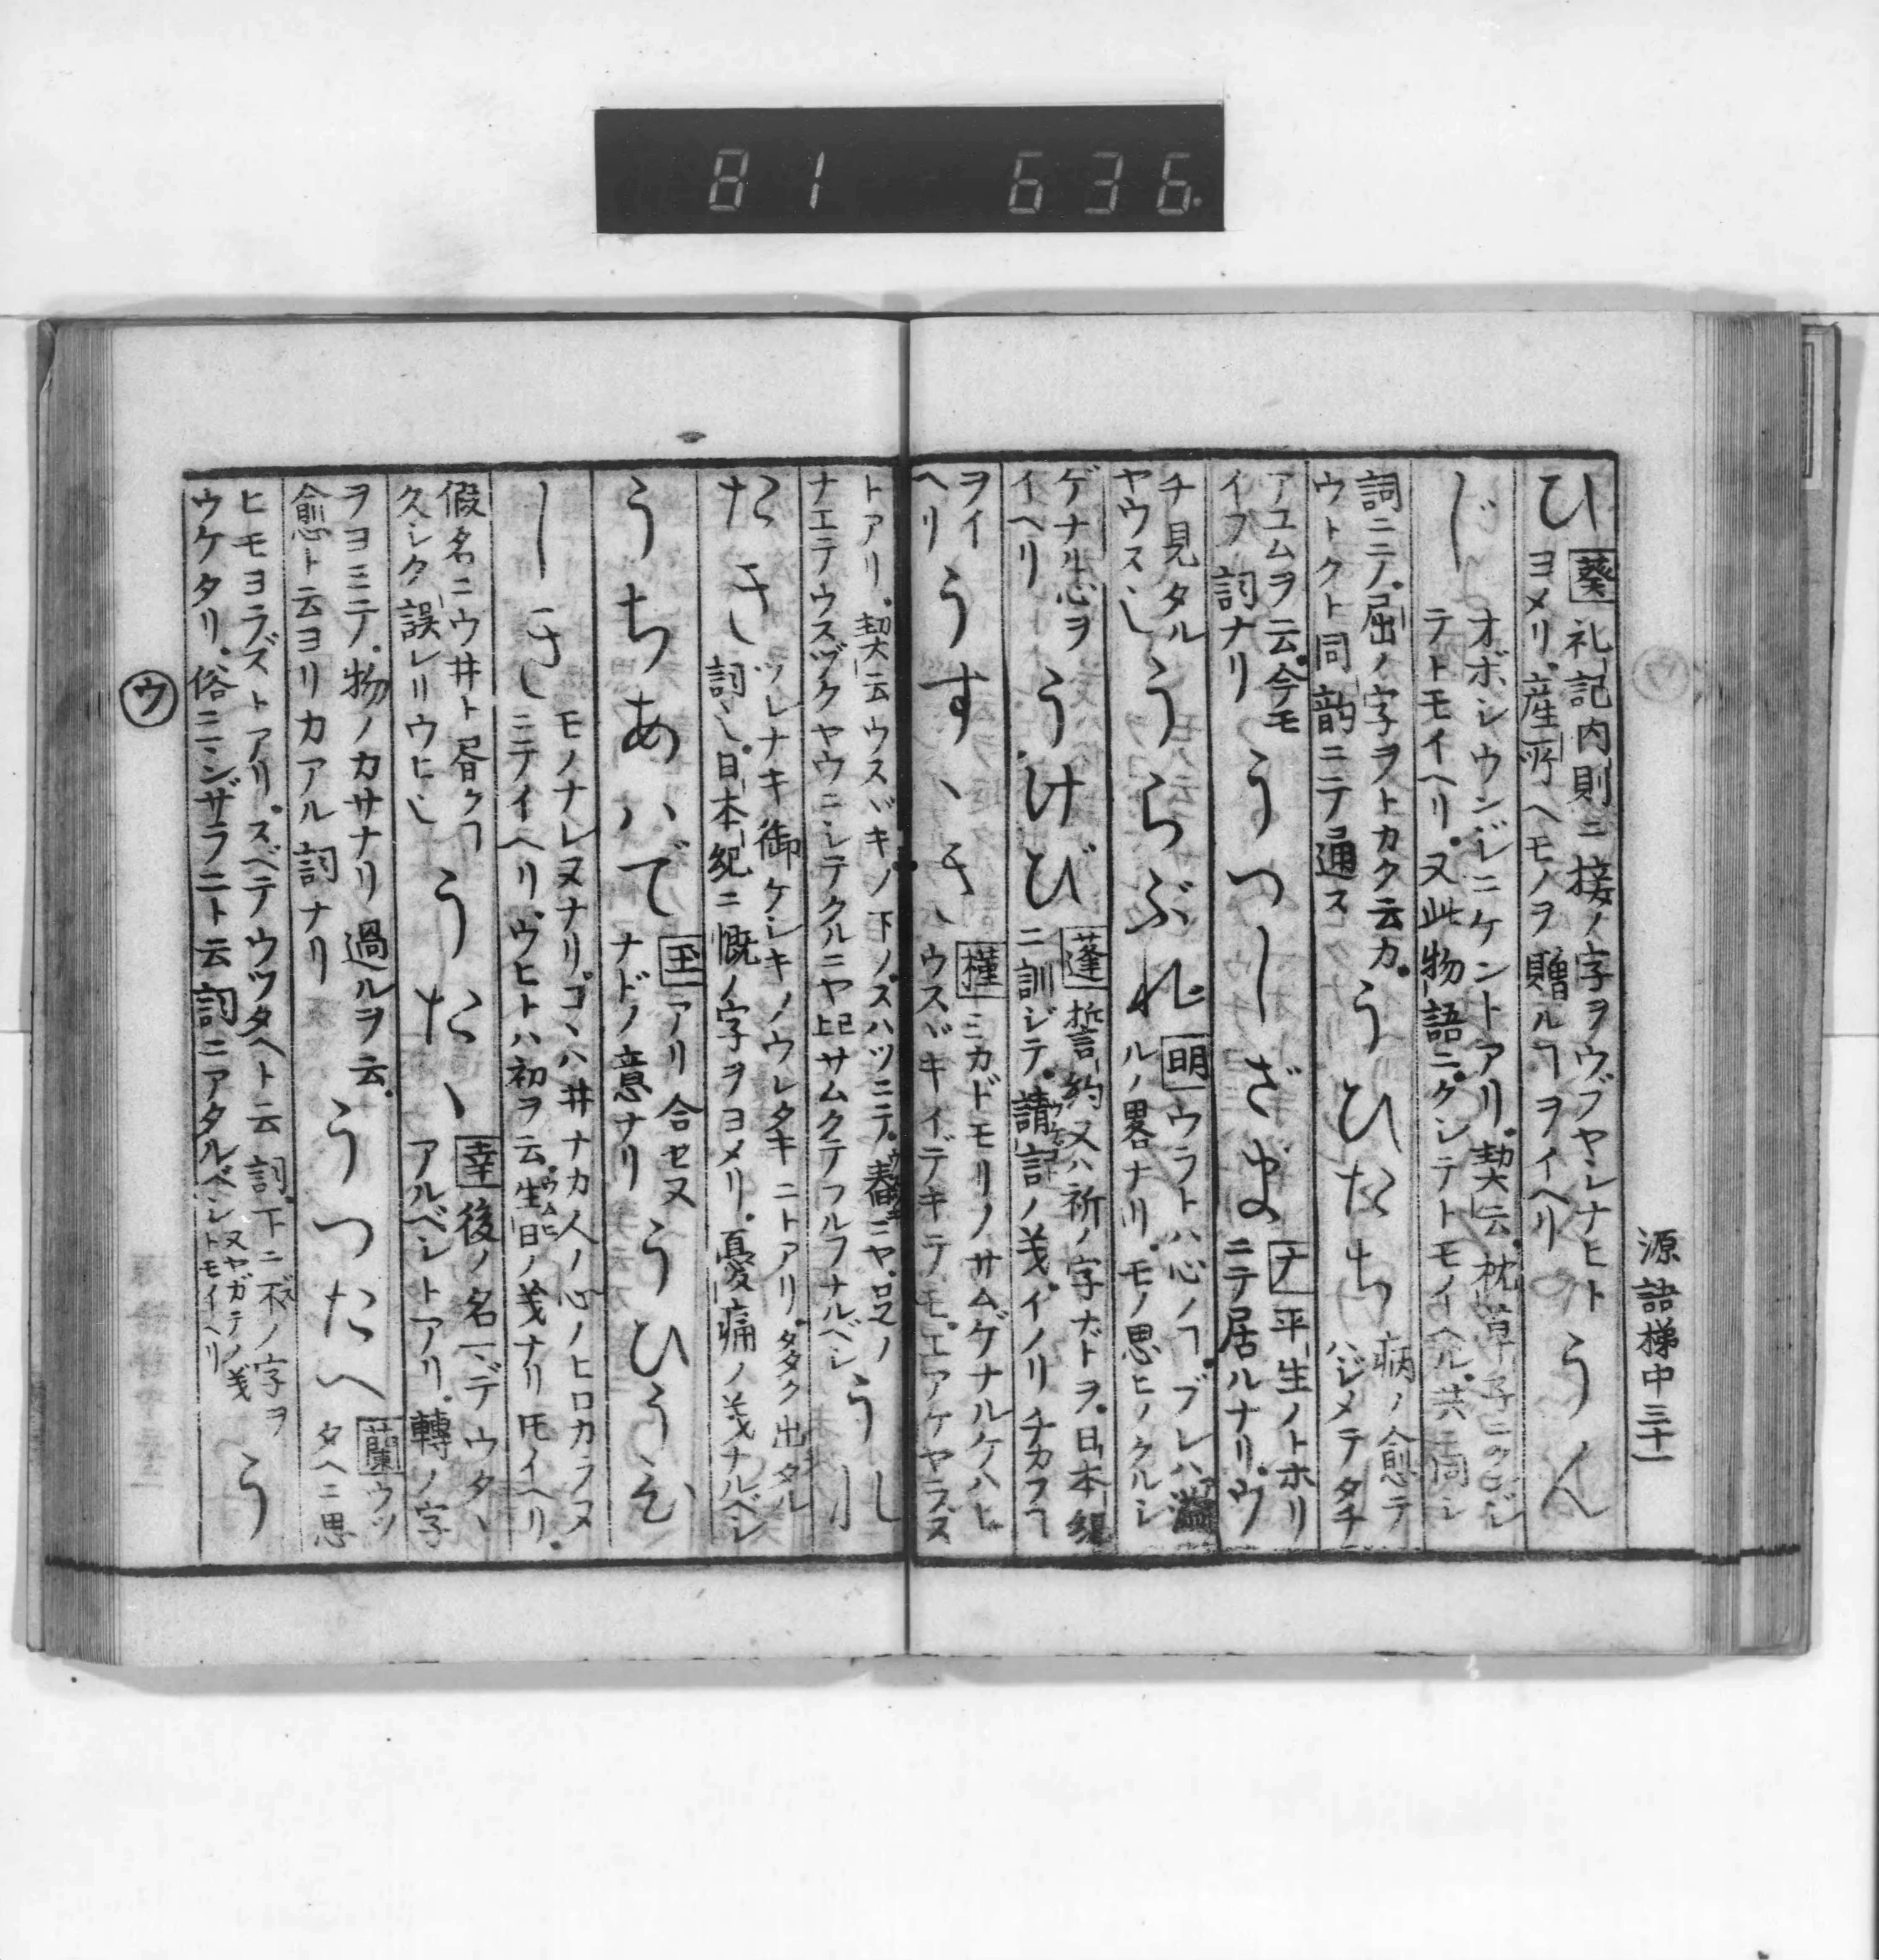 81 636.
源語梯中三十一
ひ
葵 礼記内則ニ接ノ字ヲウブヤシナヒト
ヨメリ。産所ヘモノヲ贈ルヿヲイヘリ
うん
じ
オボシウンジニケントアリ。契云。枕草子ニクンジ
テトモイヘリ。又此物語ニ。クシテトモイヘル。共ニ同シ
詞ニテノ。屈ノ字ヲトカク云カ。
ウトクト同韻ニテ通ス
うひたち
病ノ愈テ
ハジメテタチ
アユムヲ云。今モ
イフ詞ナリ
うつしざま
ナ 平生ノトホリ
ニテ居ルナリ。ウ
チ見タル
ヤウス也
うらぶれ
明 ウラトハ心ノヿ。ブレハ溢
ルノ畧ナリ。モノ思ヒノクルシ
ゲナル心ヲ
イヘリ
うけび
蓬 誓約又ハ祈ノ字ナドヲ。日本紀
ニ訓ジテ。請言ノ義。イノリチカフヿ
ヲイ
ヘリ
うすゝき
槿 ミカドモリノサムゲナルケハヒ
ウスヾキイデキテモ。エアケヤラズ
トアリ。契云ウスヾキノ下ノ。スハツニテ。春ニヤ。ロスノ
ナエテウスヅクヤウニシテクルニヤ上記サムクテフルフナルベシ
うれ
たき
ツレナキ御ケシキノウレタキニトアリ。タヾク出タル
詞也。日本紀ニ慨ノ字ヲヨメリ。憂痛ノ義ナルベシ
うちあハで
玉 アリ合セヌ
ナドノ意ナリ
うひうひ
しき
モノナレヌナリ。コヽハ井ナカ人ノ心ノヒロカラヌ
ニテイヘリ。ウヒトハ初ヲ云。生日ノ義ナリ𪜈イヘリ。
假名ニウ井ト昏クヿ
久シク誤レリウヒ也
うたゝ
幸 後ノ名一デウタヽ
アルベシトアリ。轉ノ字
ヲヨミテノ。物ノカサナリ過ルヲ云。
愈ト云ヨリカアル詞ナリ
うつたへ
蘭 ウツ
タヘニ思
ヒモヨラズトアリ。スベテウツタヘト云詞。下ニ不ノ字ヲ
ウケタリ。俗ニシザラニト云詞ニアタルベシ又ヤガテノ義トモイヘリ
う
ウ